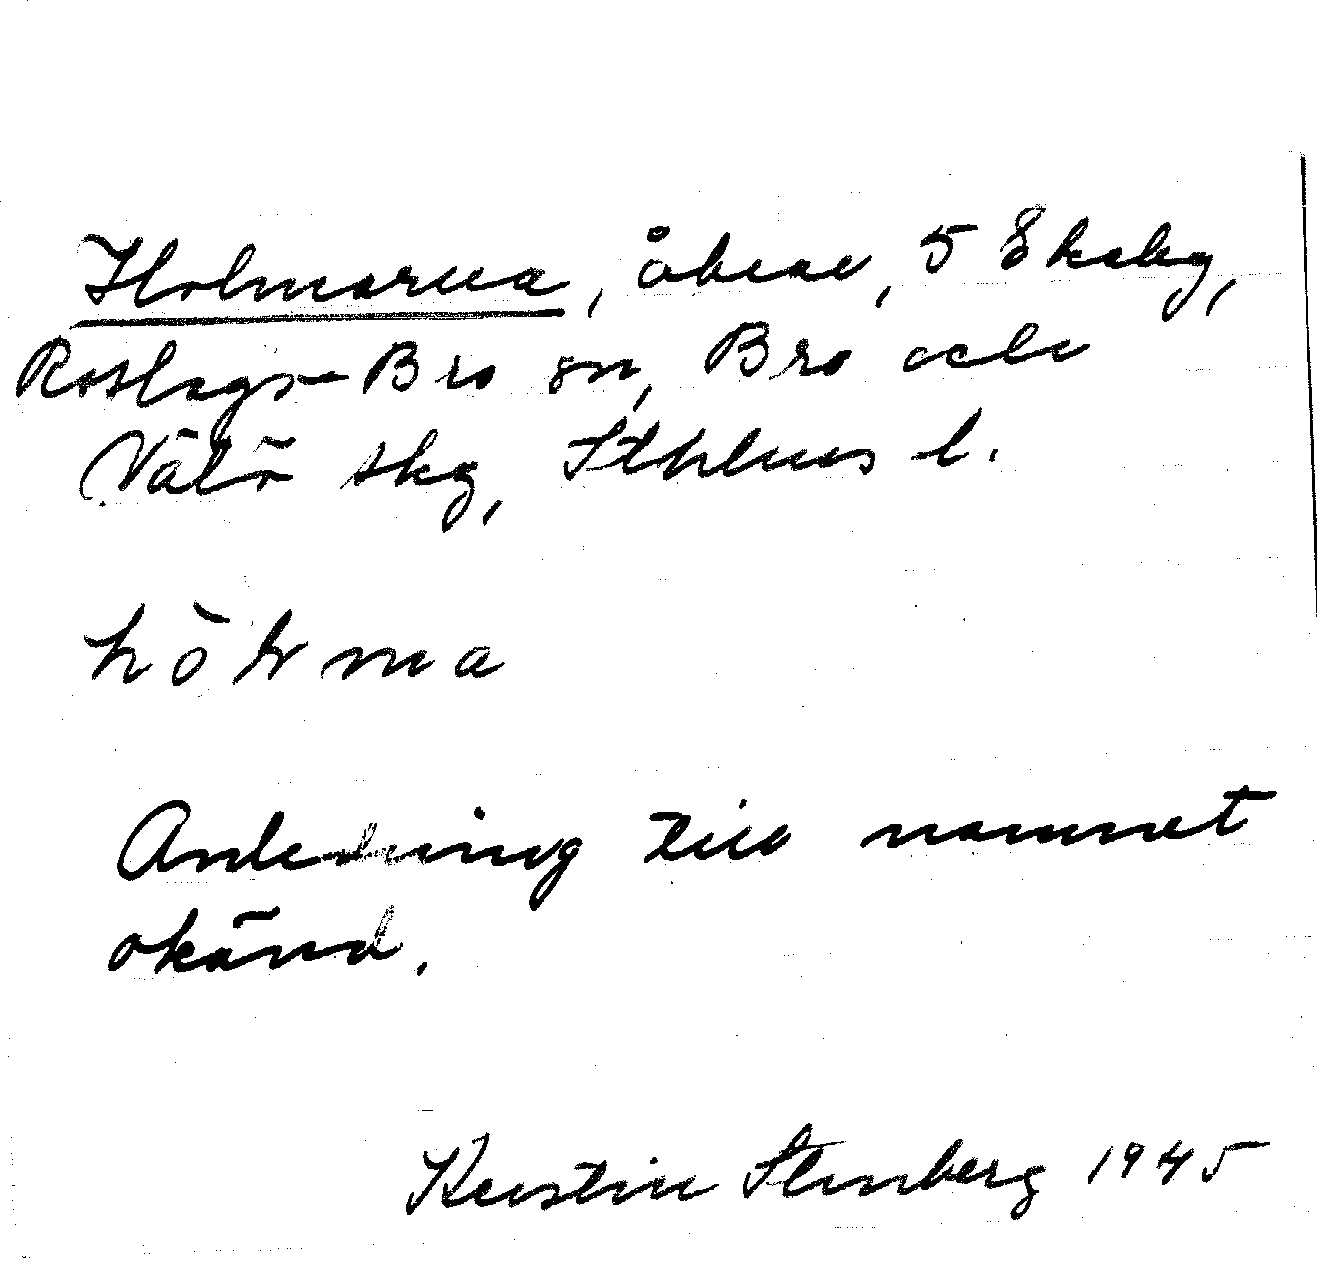 Holmarna, åkrar, 5 Ekeby,
Roslags-Bro sn, Bro och
Vätö skg, Sthlms l.
hò̀ḷma
Anledning till namnet
okänd.
Kerstin Stenberg 1945